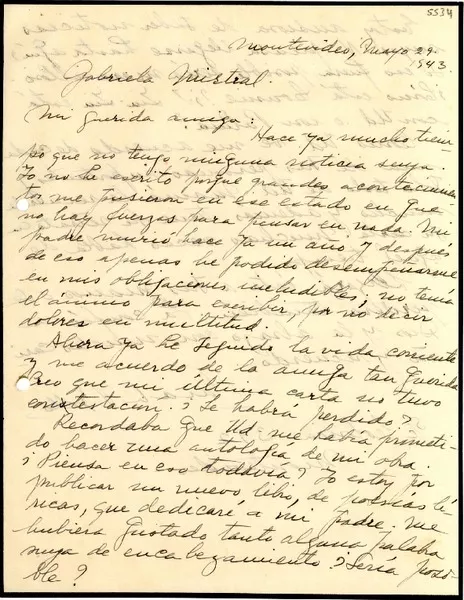 5534
Montevideo, Mayo 29.
1943.
Gabriela Mistral.
Mi querida amiga:
Hace ya mucho tiem-
po que no tengo ninguna noticia suya.
Yo no he escrito porque grandes acontecimien-
tos me pusieron en ese estado en que
no hay fuerzas para pensar en nada. Mi
padre murió hace ya un año y después
de eso apenas he podido desempeñarme
en mis obligaciones ineludibles; no tenía
el ánimo para escribir, por no decir
dolores en multitud.
Ahora ya he seguido la vida corriente
y me acuerdo de la amiga tan querida
Creo que mi última carta no tuvo
contestacion. ¿Se habrá perdido?
Recordaba que Ud. me había prometi-
do hacer una antología de mi obra.
¿Piensa en eso todavía? Yo estoy por
publicar un nuevo libro, de poesías lí-
ricas, que dedicaré a mi padre. Me
hubiera gustado tanto alguna palabra
suya de encabezamiento ¿Sería posi-
ble?